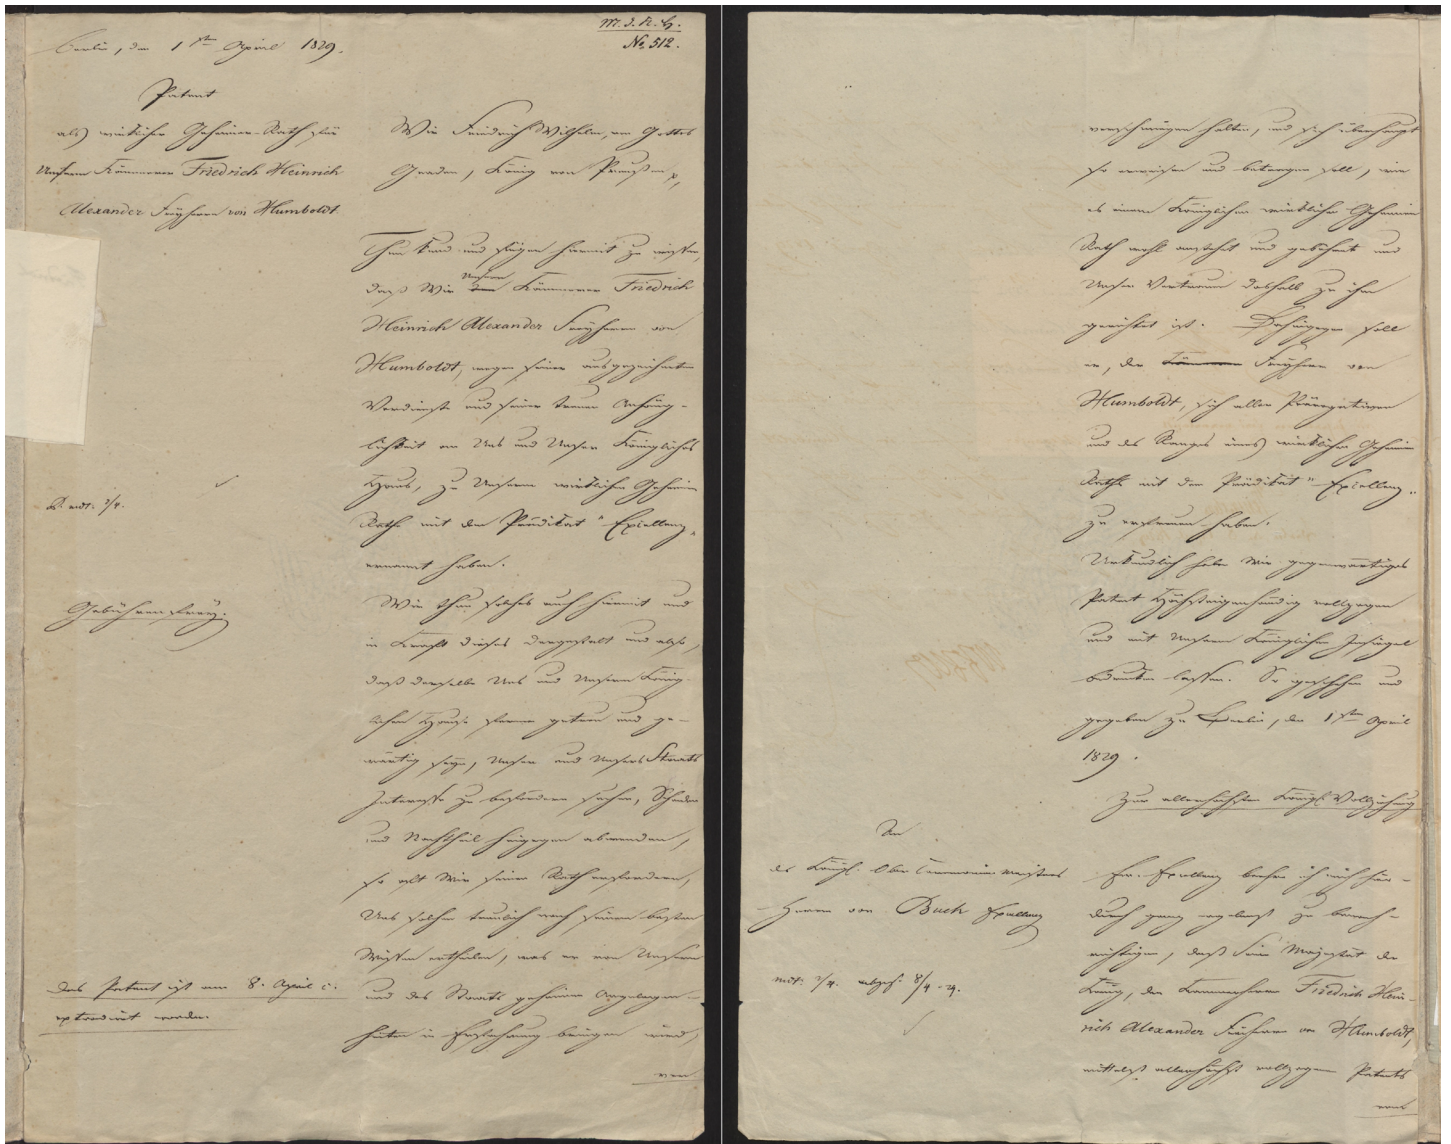 M. d. K. H.
No. 512.
Berlin, den 1sten April 1829.
Patent
als wirklicher Geheimer-Rath für
Unsern Kämmerer Friedrich Heinrich
Alexander Freyherrn von Humboldt.
Gebührenfrey.
Das Patent ist am 8. April c.
extradirt worden.
Wir Friedrich Wilhelm, von Gottes
Gnaden, König von Preußen p,
Thun kund und fügen hiermit zu wissen,
daß Wir Unsern Kämmerer Friedrich
Heinrich Alexander Freyherrn von
Humboldt, wegen seiner ausgezeichneten
Verdienste und seiner treuen Anhäng-
lichkeit an Uns und Unser Königliches
Haus, zu Unserm wirklichen Geheimen
Rathe mit dem Prädikat "Excellenz"
ernannt haben.
Wir thun solches auch hiermit und
in Kraft dieses dergestalt und also,
daß derselbe Uns und Unserm König-
lichen Hause ferner getreu und ge-
wärtig seyn, Unser und Unsers Staats
Interesse zu befördern suchen, Schaden
und Nachtheil hingegen abwenden,
so oft Wir seinen Rath erfordern,
Uns solchen treulich nach seinem besten
Wissen ertheilen, was er von Unsern
und des Staats geheimen Angelegen-
heiten in Erfahrung bringen wird,
ver-
verschwiegen halten, und sich überhaupt
so erweisen und betragen soll, wie
es einem Königlichen wirklichen Geheimen
Rath wohl ansteht und gebührt und
Unser Vertrauen deshalb zu ihm
gerichtet ist. Dahingegen soll
er, der Freyherr von
Humboldt, sich aller Prärogativen
und des Ranges eines wirklichen Geheimen
Raths mit dem Prädikat "Excellenz"
zu erfreuen haben.
Urkundlich haben Wir gegenwärtiges
Patent Höchsteigenhändig vollzogen
und mit Unserm Königlichen Insiegel
bedrucken lassen. So geschehen und
gegeben zu Berlin, den 1sten April
1829.
Zur allerhöchsten Königl. Vollziehung
An
des Königl. Ober Ceremonien Meisters
Herrn von Buch Excellenz
mit: 2/4. abges. 8/4 - 29.
Ew. Excellenz beehre ich mich hier-
durch ganz ergebenst zu benach-
richtigen, daß Seine Majestät der
König, den Kammerherrn Friedrich Hein-
rich Alexander Freiherrn von Humboldt,
mittelst allerhöchst vollzogenen Patents
vom